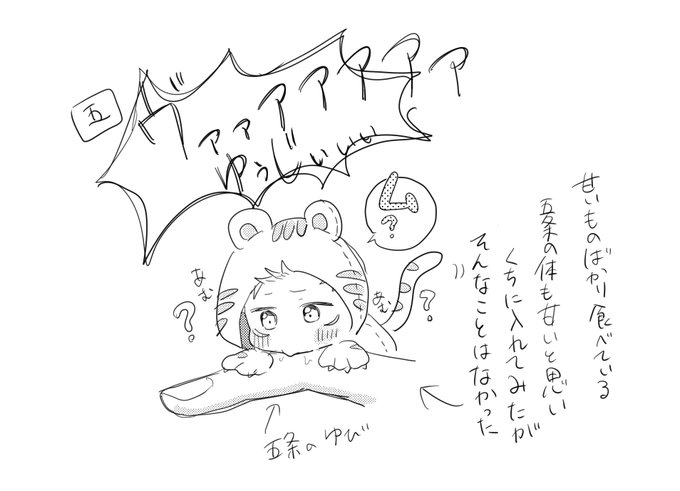 五
ヴァアアアアアア
ゆぅじいいい
甘いものばかり食べている
五条の体も甘いと思い
くちに入れてみたが
そんなことはなかった
ム?
あむ
?
あむ
?
五条のゆび